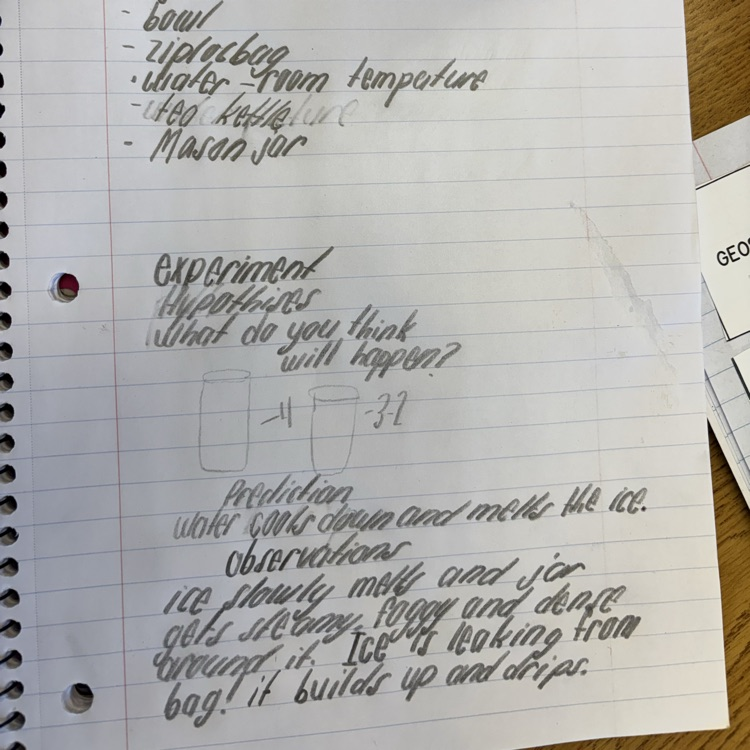 - Bowl
- ziplocbag
- water - room temperture
- kettle
- Mason jar
experiment
Hypothises
What do you think
will happen?
-4
-3-2
Prediction
water cools down and melts the ice.
observations
ice slowly melts and jar
gets steamy, foggy and dense
around it. Ice is leaking from
bag! it builds up and drips.
GEOS